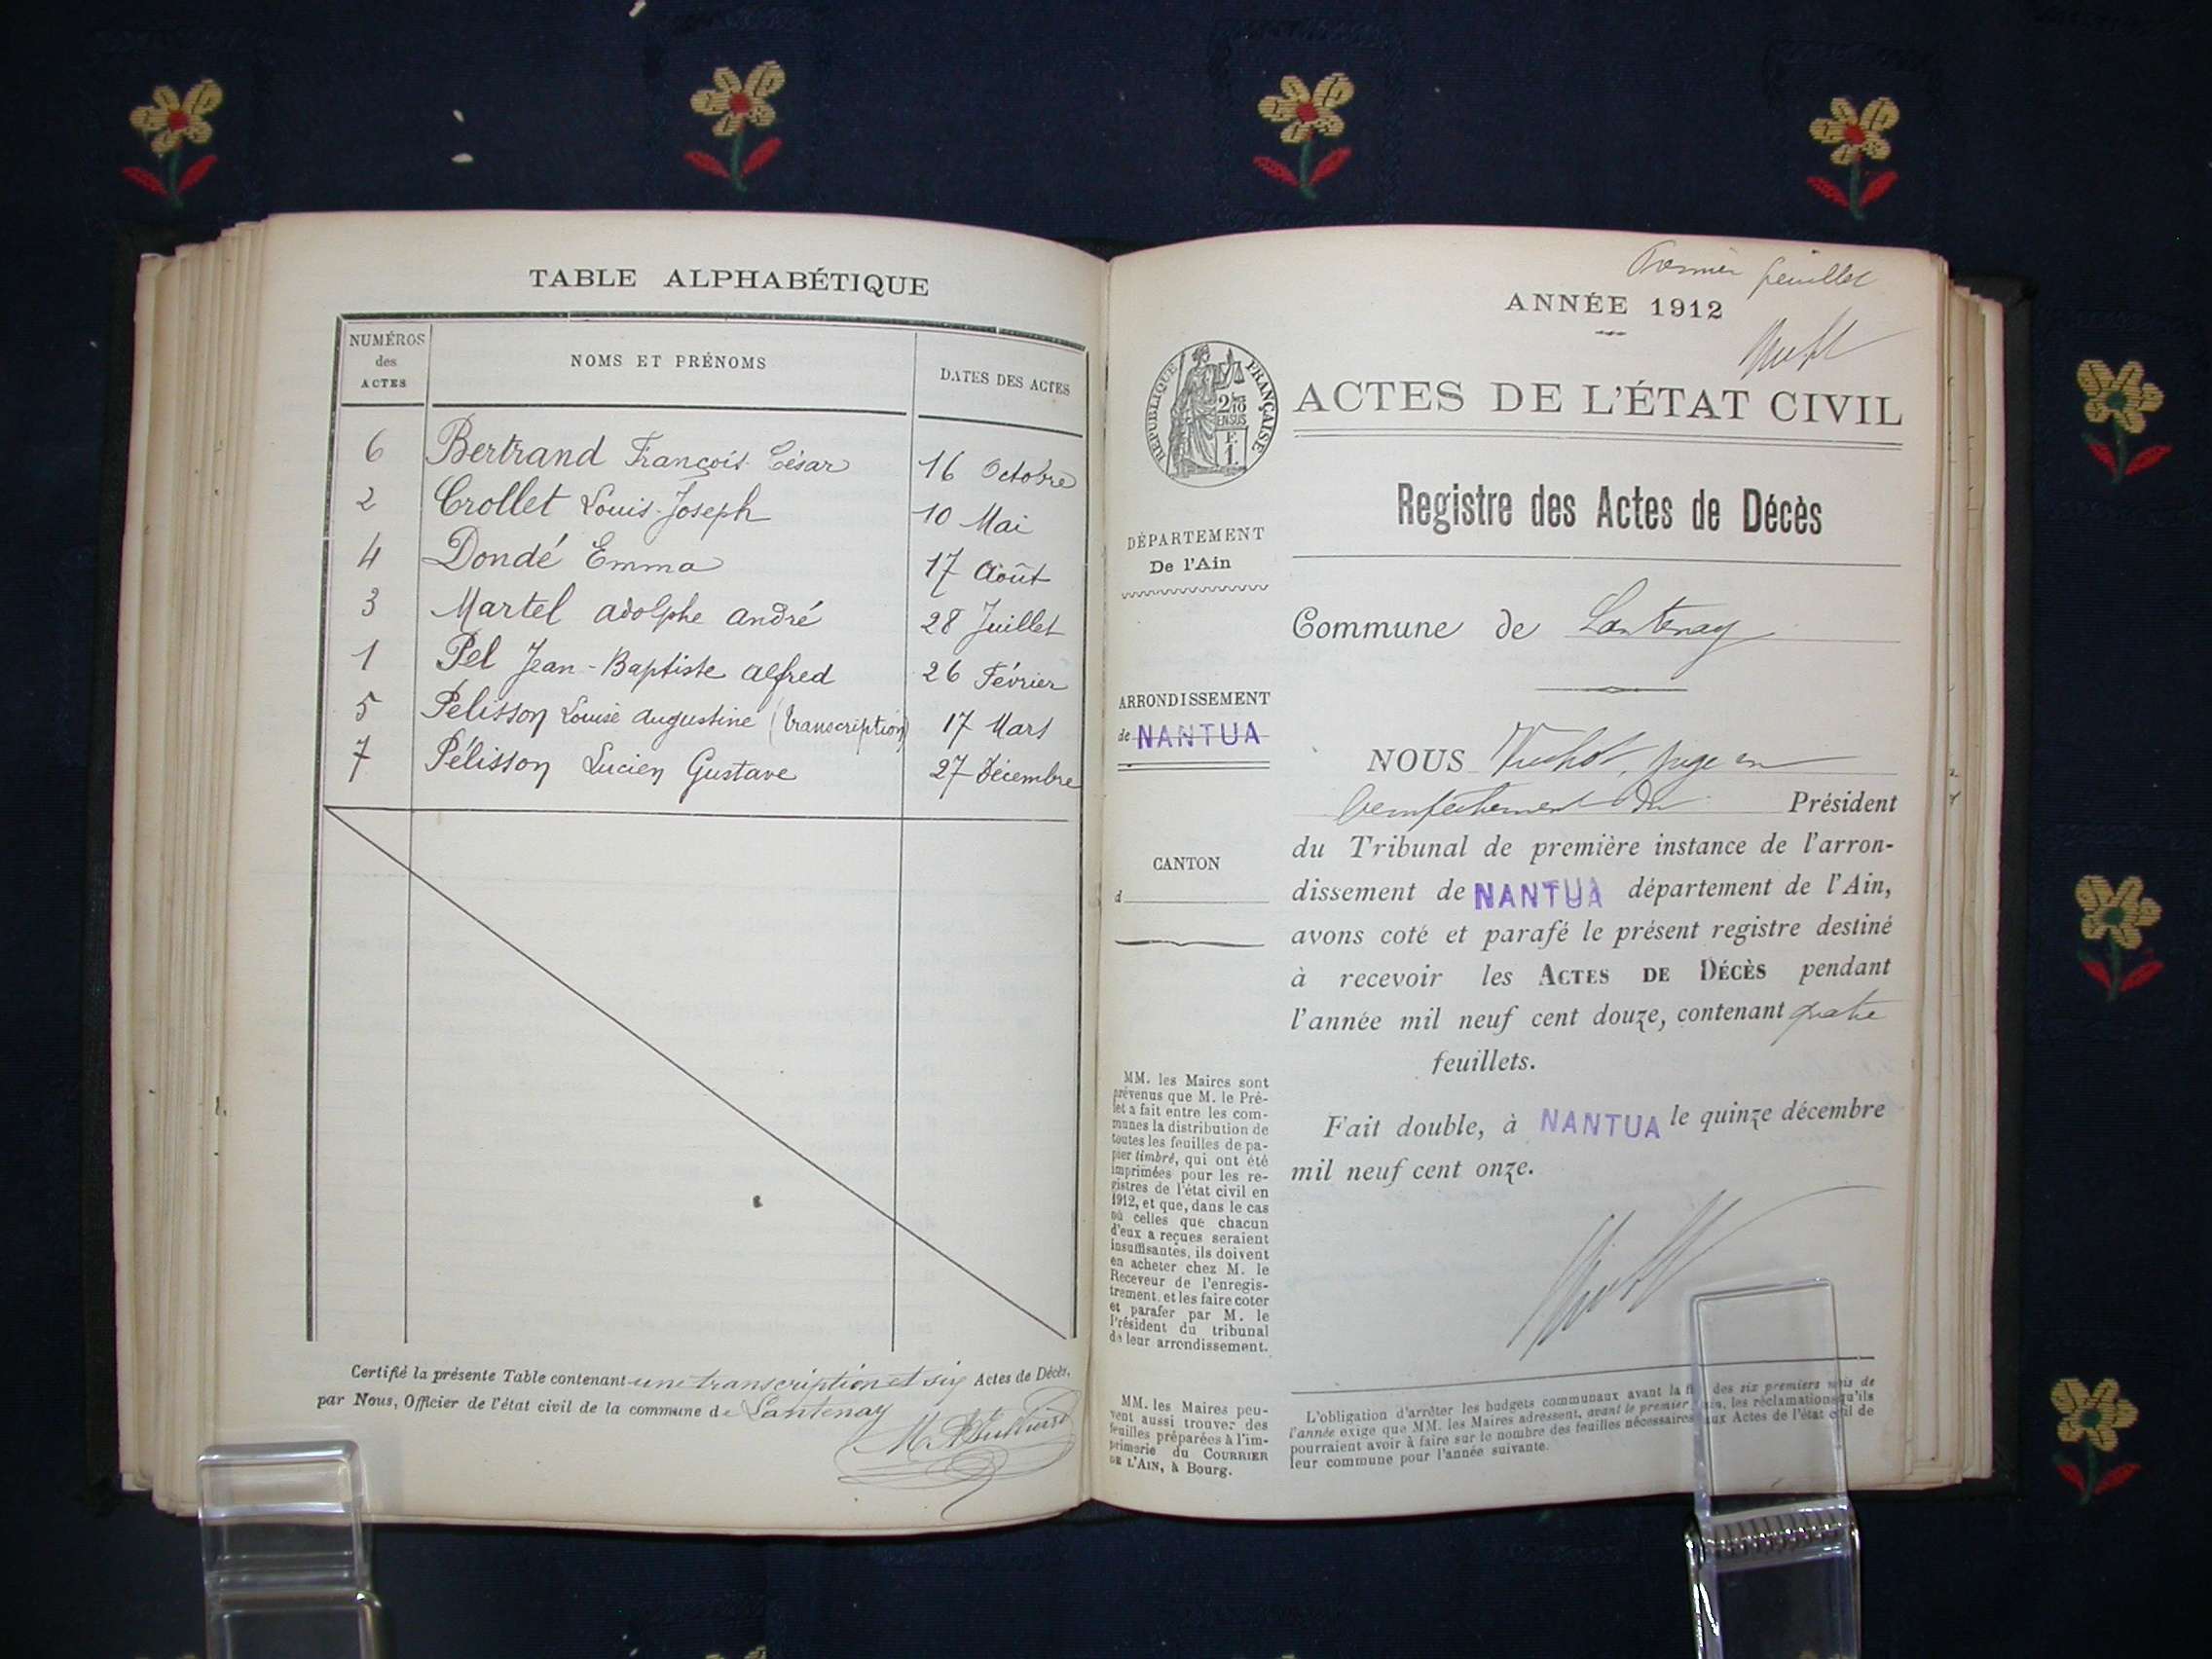 TABLE ALPHABÉTIQUE
NUMÉROS des ACTES
NOMS ET PRÉNOMS
DATES DES ACTES
6 Bertrand François César 16 Octobre
2 Crollet Louis-Joseph 10 Mai
4 Dondé Emma 17 Août
3 Martel Adolphe André 28 Juillet
1 Pel Jean-Baptiste Alfred 26 Février
5 Pélisson Louise Augustine (transcription) 17 Mars
7 Pélisson Lucien Gustave 27 Décembre
Certifié la présente Table contenant une transcription et six Actes de Décès,
par Nous, Officier de l'état civil de la commune de Lantenay
Premier feuillet
ANNÉE 1912
RÉPUBLIQUE FRANÇAISE
2/10
EN SUS
F.
1.
ACTES DE L'ÉTAT CIVIL
Registre des Actes de Décès
DÉPARTEMENT
De l'Ain
Commune de Lantenay
ARRONDISSEMENT
de NANTUA
CANTON
d
NOUS juge en
l'empêchement du Président
du Tribunal de première instance de l'arron-
dissement de NANTUA département de l'Ain,
avons coté et parafé le présent registre destiné
à recevoir les ACTES DE DÉCÈS pendant
l'année mil neuf cent douze, contenant quatre
feuillets.
Fait double, à NANTUA le quinze décembre
mil neuf cent onze.
MM. les Maires sont
prévenus que M. le Pré-
fet a fait entre les com-
munes la distribution de
toutes les feuilles de pa-
pier timbré, qui ont été
imprimées pour les re-
gistres de l'état civil en
1912, et que, dans le cas
où celles que chacun
d'eux a reçues seraient
insuffisantes, ils doivent
en acheter chez M. le
Receveur de l'enregis-
trement, et les faire coter
et parafer par M. le
Président du tribunal
de leur arrondissement.
MM. les Maires peu-
vent aussi trouver des
feuilles préparées à l'im-
primerie du COURRIER
DE L'AIN, à Bourg.
L'obligation d'arrêter les budgets communaux avant la fin des six premiers mois de
l'année exige que MM. les Maires adressent, avant le premier juin, les réclamations qu'ils
pourraient avoir à faire sur le nombre des feuilles nécessaires aux Actes de l'état civil de
leur commune pour l'année suivante.